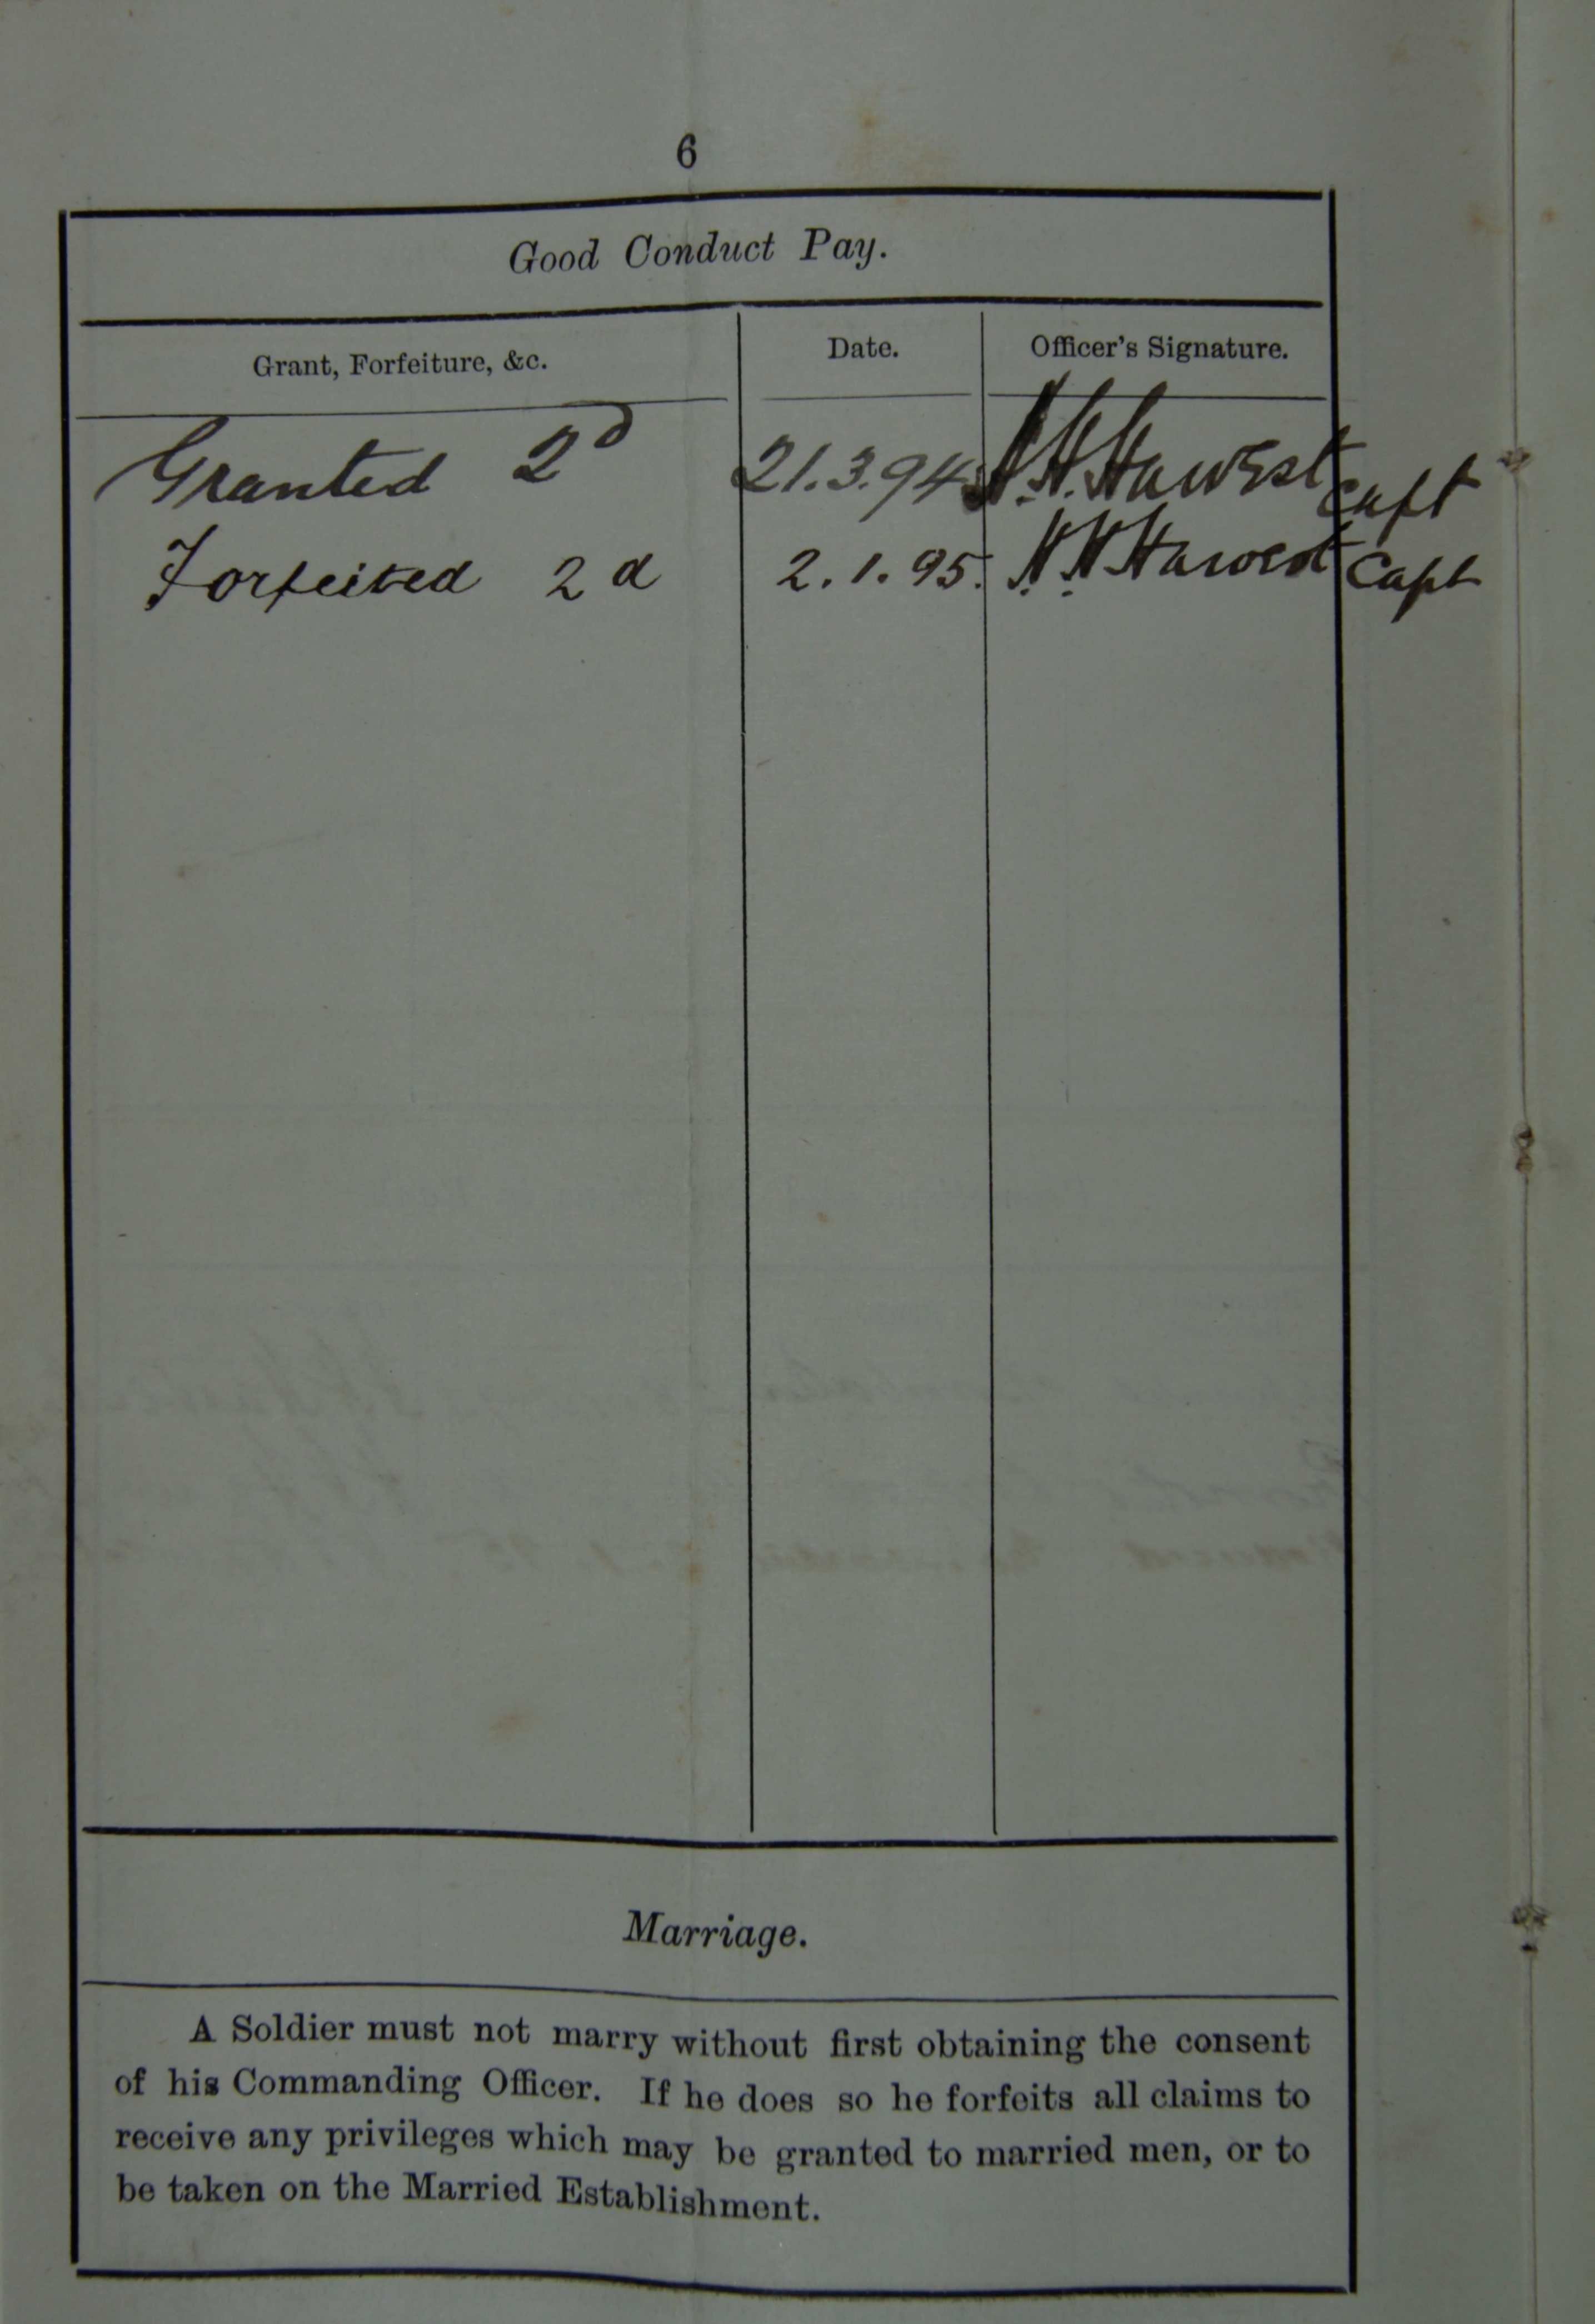 6
Good Conduct Pay.
Grant, Forfeiture, &c. Date. Officer's Signature.
Granted 2d 21.3.94 Capt
Forfeited 2d 2.1.95. Capt
Marriage.
A Soldier must not marry without first obtaining the consent
of his Commanding Officer. If he does so he forfeits all claims to
receive any privileges which may be granted to married men, or to
be taken on the Married Establishment.